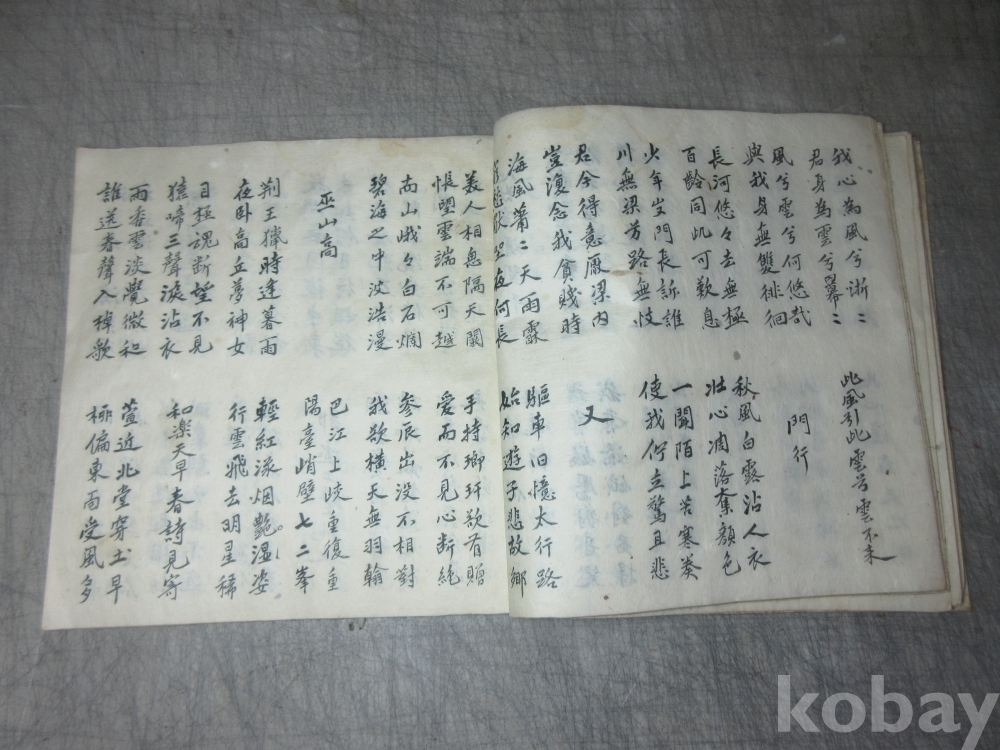 我心為風兮淅〻
君身為雲兮冪〻
此風引此雲兮雲不來
風兮雲兮何悠哉
與我身無雙徘徊
門行
長河悠々去無極
百齡同此可歎息
秋風白露沾人衣
壯心凋落奪顏色
少年出門長訴誰
川無梁芳路無岐
一聞陌上苦寒奏
使我佇立驚且悲
君今得意厭梁肉
豈復念我貧賤時
又
海風蕭〻天雨霖
獨坐夜何長
驅車旧憶太行路
始知遊子悲故鄉
美人相思隔天闕
悵望雲端不可越
手持瑯玕欲有贈
愛而不見心斷絕
南山峨々白石爛
碧海之中波浩漫
參辰出没不相對
我欲橫天無羽翰
巫山高
巴江上峽重復重
陽臺峭壁七二峯
荆王獵時逢暮雨
夜卧高丘夢神女
輕紅流烟艷湿姿
行雲飛去明星稀
目極魂断望不見
猿啼三聲淚沾衣
和楽天早春詩見寄
雨香雲淡覺微和
誰送春聲入棹歌
萱近北堂穿土早
柳偏東面受風多
kobay